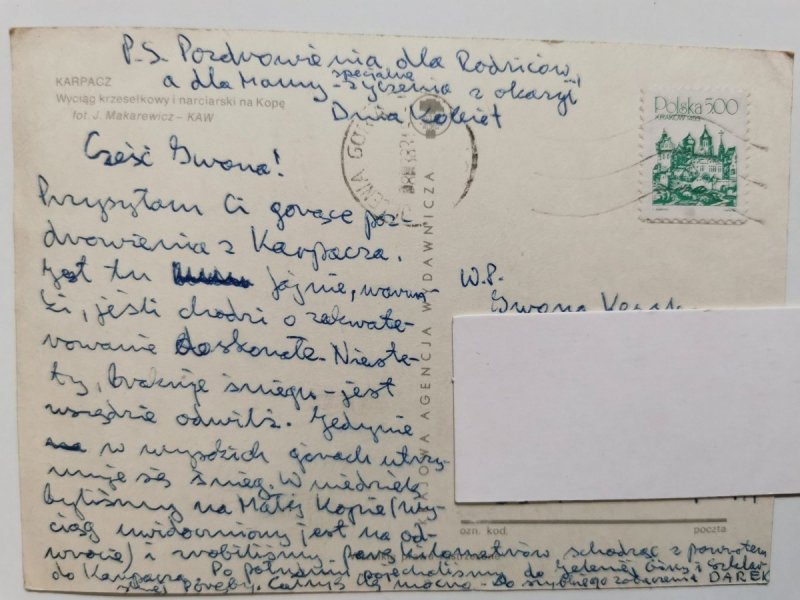 P.S. Pozdrowienia dla Rodziców,
a dla Mamy specjalne życzenia z okazji
Dnia Kobiet
KARPACZ
Wyciąg krzesełkowy i narciarski na Kopę
fot. J. Makarewicz – KAW
Polska 5.00
KRAKÓW 1493
KRAJOWA AGENCJA WYDAWNICZA
Cześć Iwona!
Przysyłam Ci gorące poz-
drowienia z Karpacza.
Jest tu fajnie, warun-
ki, jeśli chodzi o zakwate-
rowanie doskonałe. Nieste-
ty, brakuje śniegu – jest
wszędzie odwilż. Jedynie
w wysokich górach utrzy-
muje się śnieg. W niedzielę
byliśmy na Małej Kopie (wy-
ciąg uwidoczniony jest na od-
wrocie) i zrobiliśmy parę kilometrów schodząc z powrotem
do Karpacza. Po południu pojechaliśmy do Jeleniej Góry i Szklar-
skiej Poręby. Całuję Cię mocno – Do szybnego zobaczenia DAREK
W.P.
Iwona
ozn. kod.
poczta